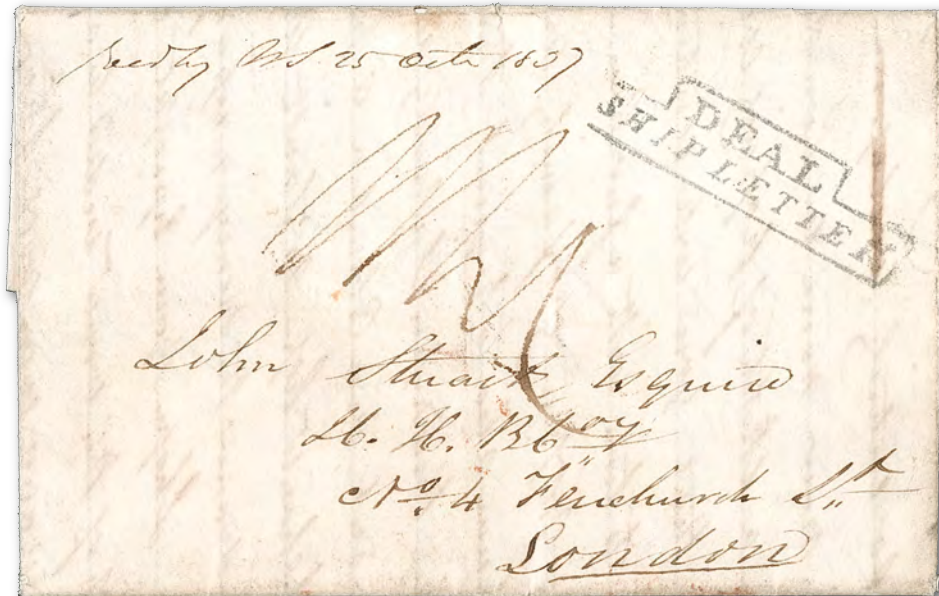 Recd by WS 25 Octr 1837
DEAL
SHIP LETTER
John Stuart Esquire
H. H. B Coy
No. 4 Fenchurch St
London